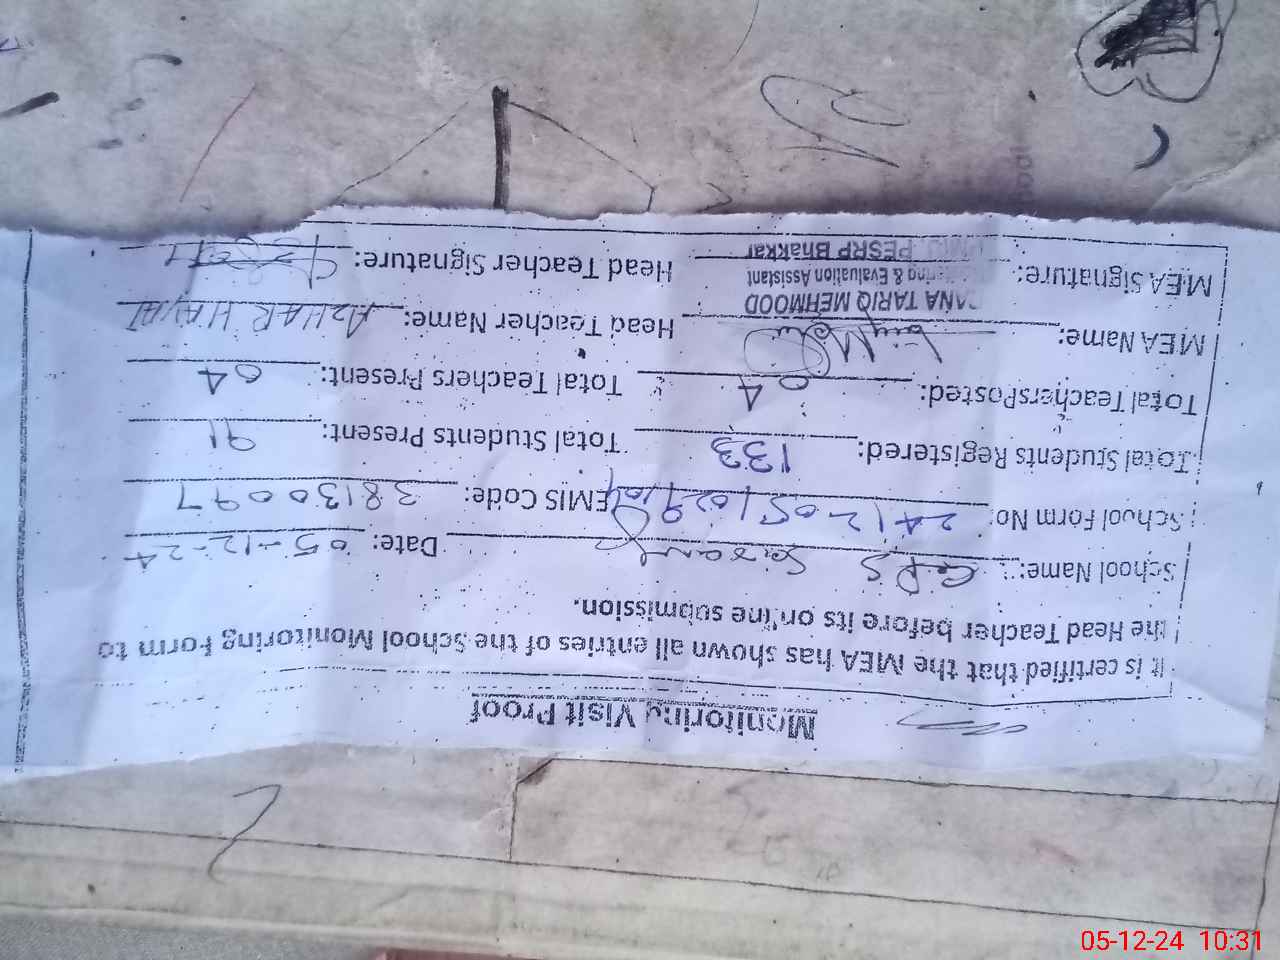 Monitoring Visit Proof
It is certified that the MEA has shown all entries of the School Monitoring Form to
the Head Teacher before its online submission.
School Name: GPS Date: 05-12-24
School Form No: EMIS Code: 38130097
Total Students Registered: 133 Total Students Present: 91
Total Teachers Posted: 04 Total Teachers Present: 04
MEA Name: Head Teacher Name: AZHAR HAYAT
RANA TARIQ MEHMOOD
Monitoring & Evaluation Assistant
MEA Signature: Head Teacher Signature:
PMIU, PESRP Bhakkar
05-12-24 10:31